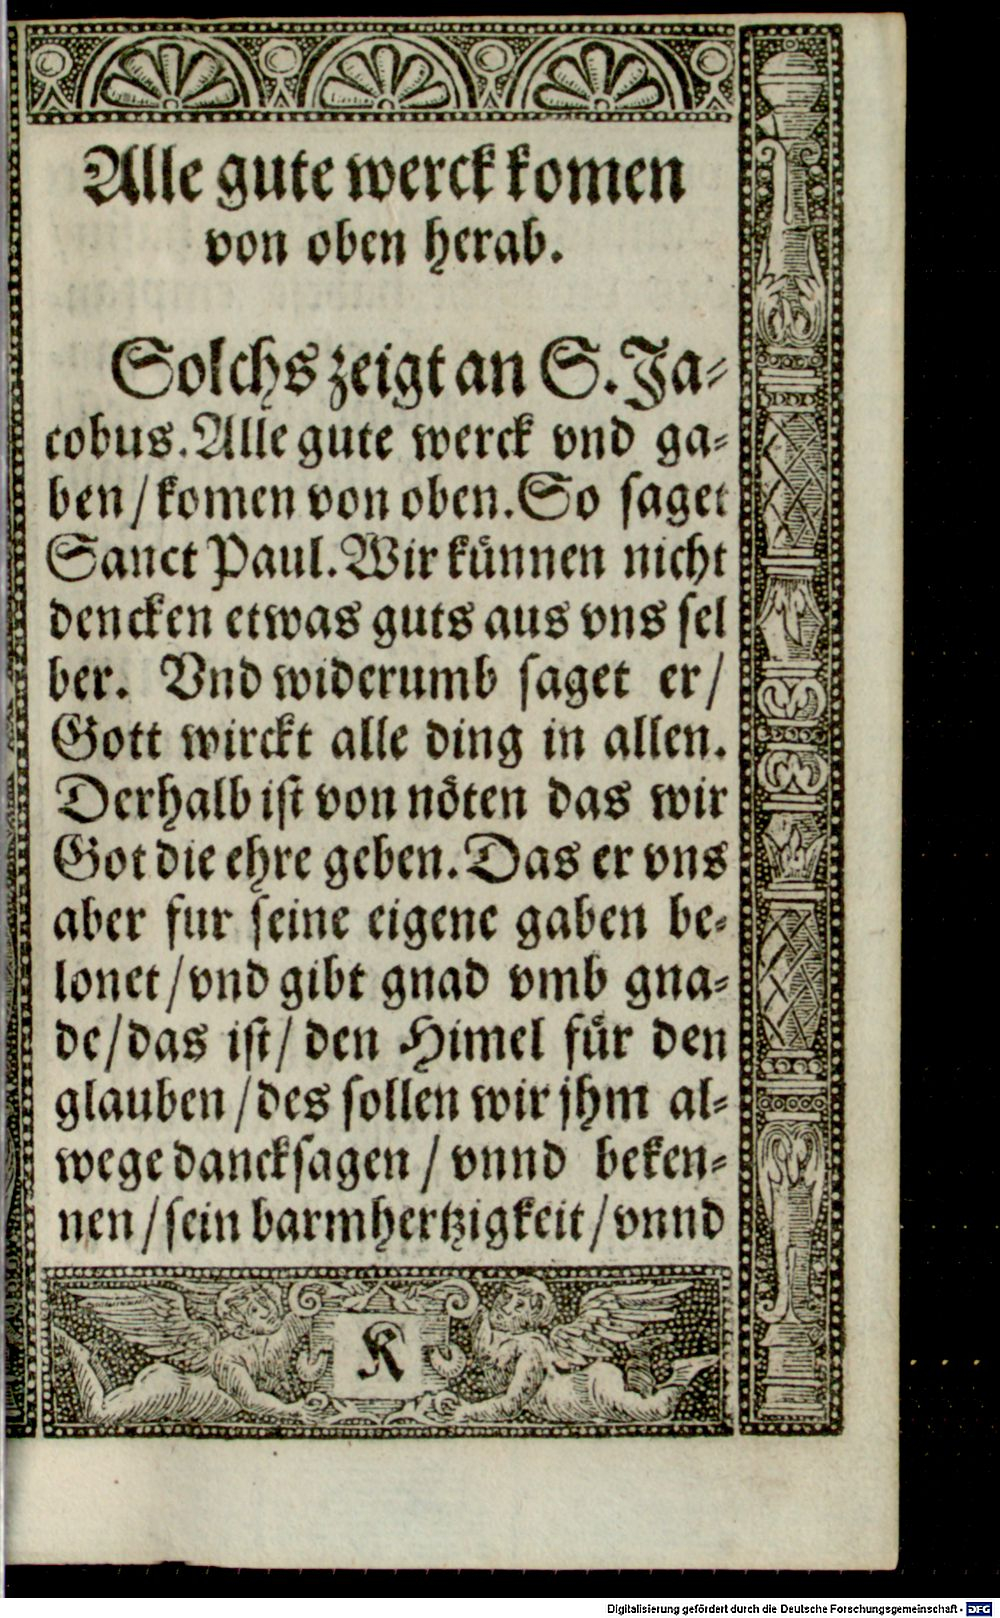 Alle gute werck komen
von oben herab.
Solchs zeigt an S. Ja⸗
cobus. Alle gute werck vnd ga⸗
ben / komen von oben. So saget
Sanct Paul. Wir künnen nicht
dencken etwas guts aus vns sel
ber. Vnd widerumb saget er /
Gott wirckt alle ding in allen.
Derhalb ist von nöten das wir
Got die ehre geben. Das er vns
aber fur seine eigene gaben be⸗
lonet / vnd gibt gnad vmb gna⸗
de / das ist / den Himel für den
glauben / des sollen wir jhm al⸗
wege dancksagen / vnnd beken⸗
nen / sein barmhertzigkeit / vnnd
K
Digitalisierung gefördert durch die Deutsche Forschungsgemeinschaft - DFG